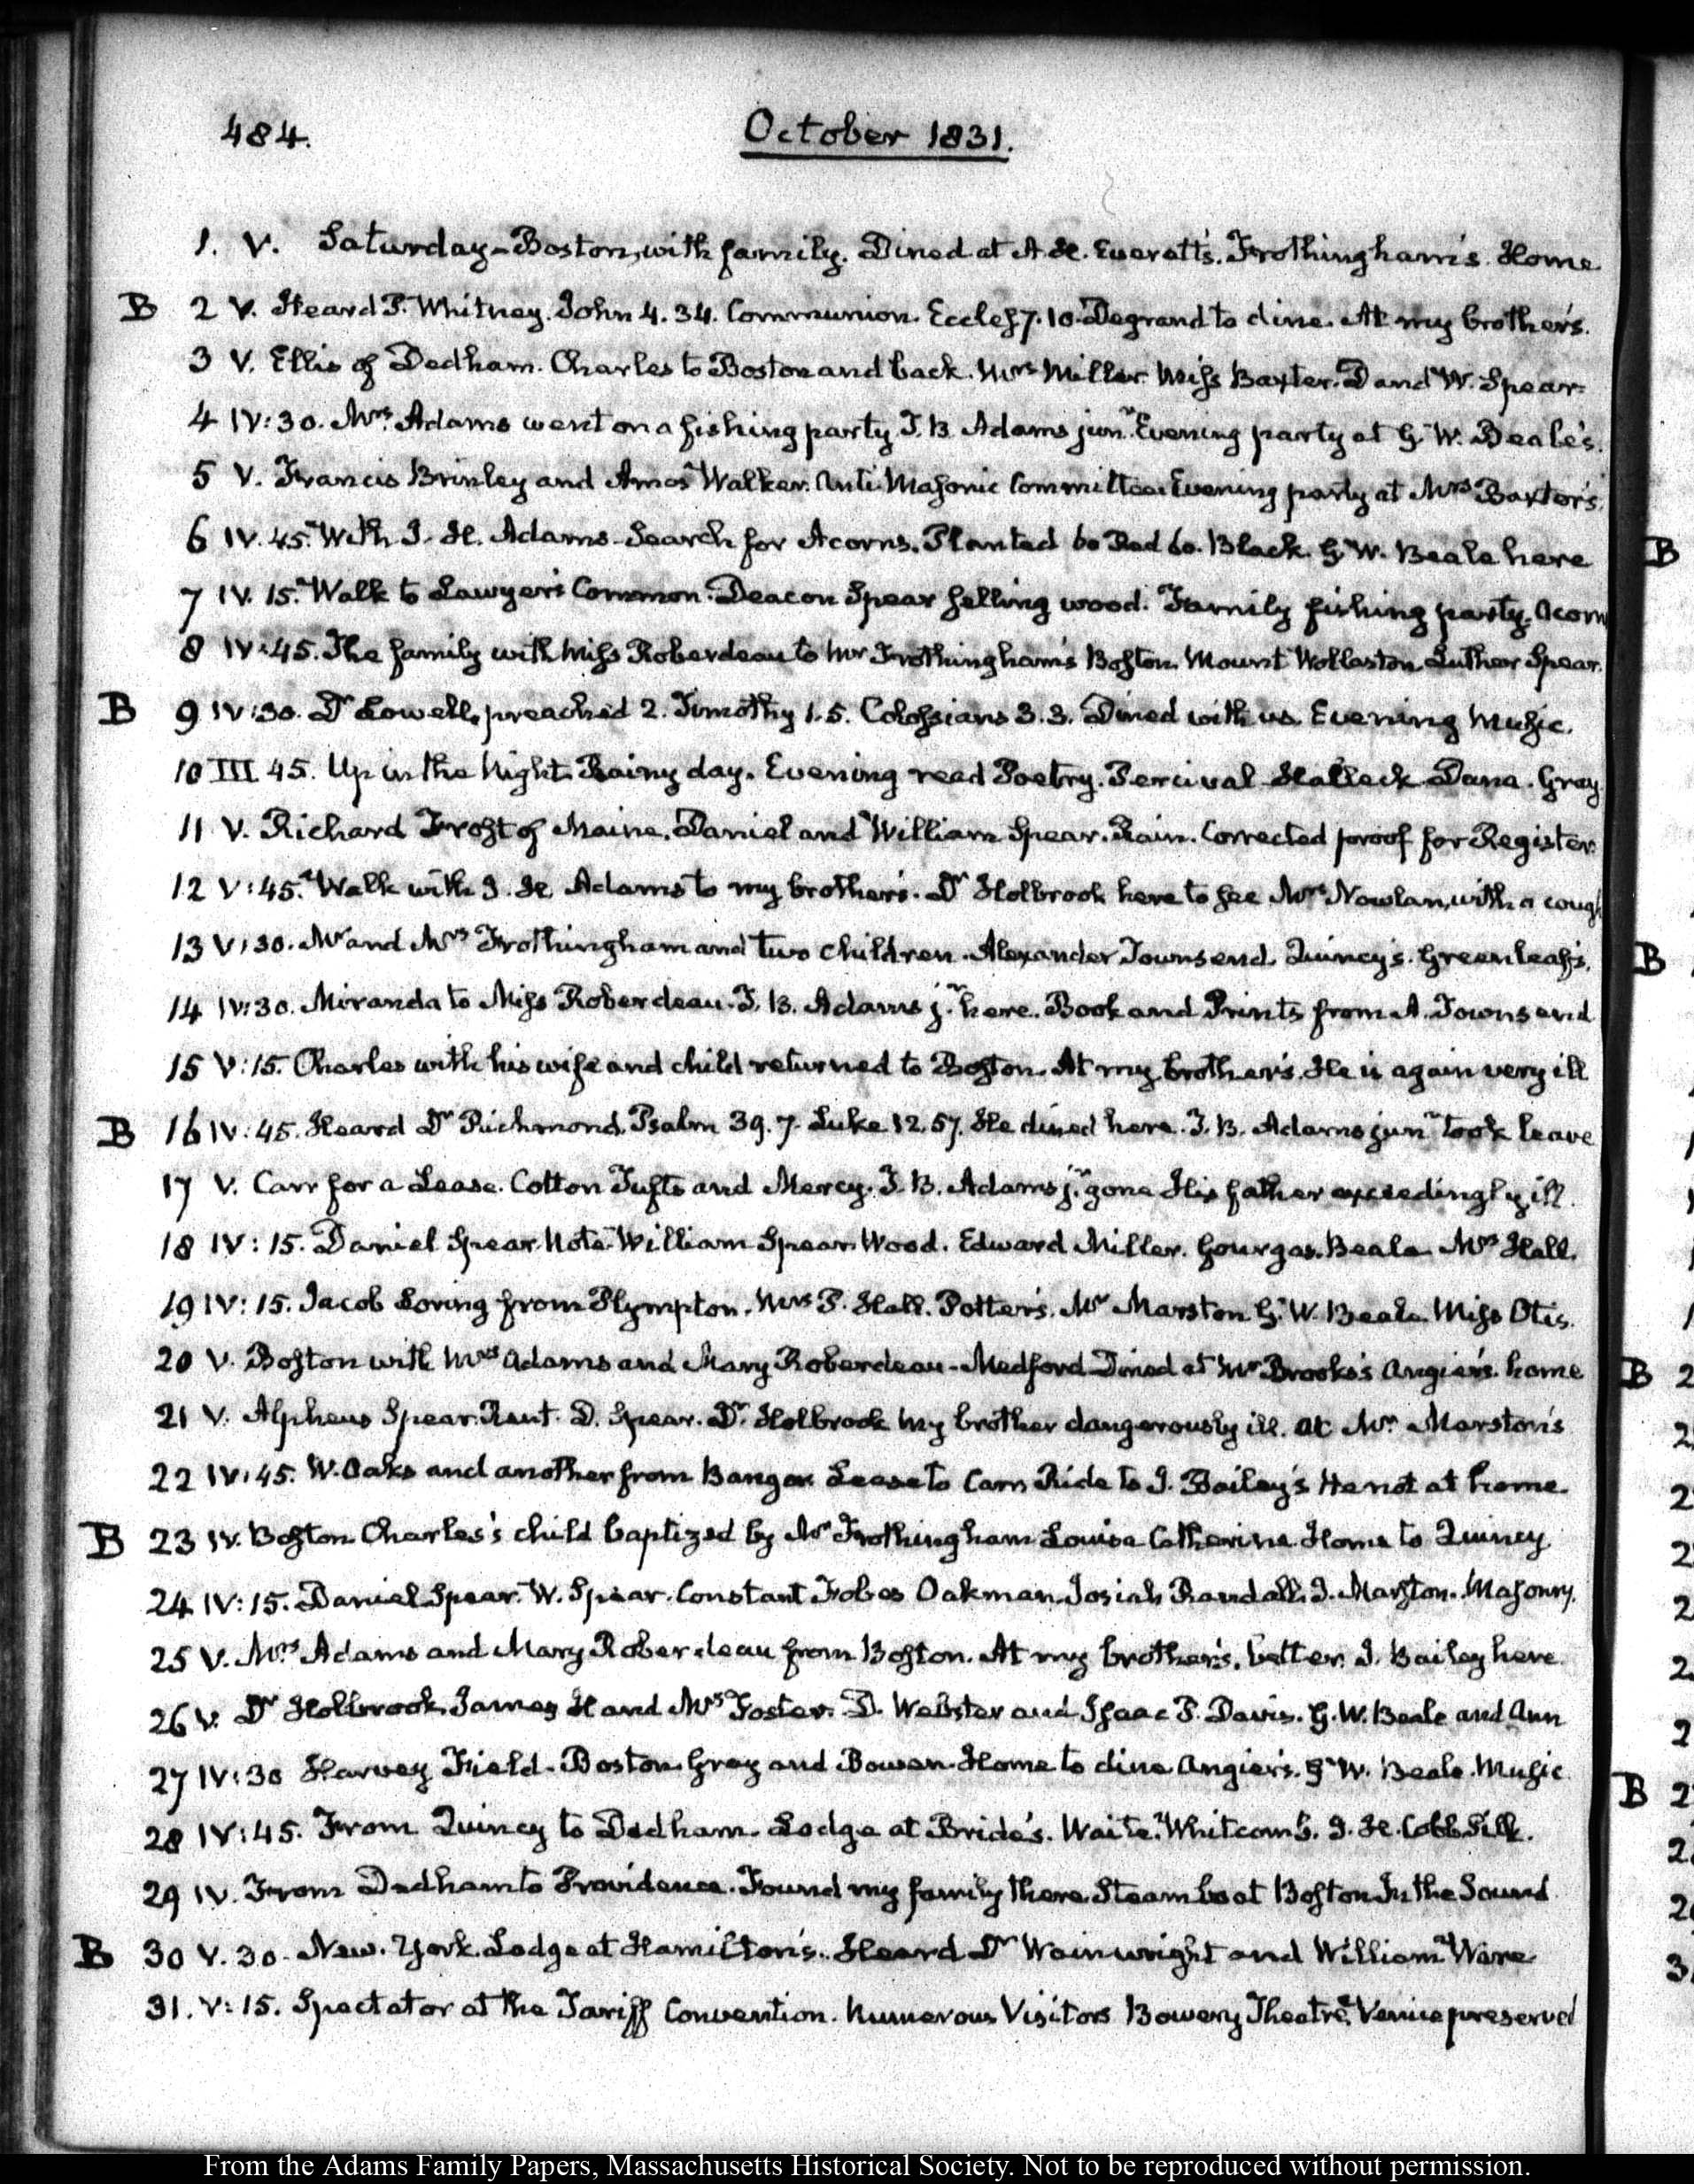 484.
October 1831.
1. V. Saturday - Boston, with family. Dined at A. H. Everett's. Frothingham's. Home
B 2 V. Heard P. Whitney. John 4. 34. Communion. Eccles 7. 10. Degrand to dine. At my brother's.
3 V. Ellis of Dedham. Charles to Boston and back. Mrs Miller. Miss Baxter. D and W. Spear.
4 IV:30. Mrs. Adams went on a fishing party. T. B. Adams junr. Evening party at G. W. Beale's.
5 V. Francis Brinley and Amasa Walker. Anti Masonic Committee. Evening party at Mrs Baxter's.
6 IV. 45. With I. H. Adams - Search for Acorns. Planted 60 Red 60. Black. G. W. Beale here
7 IV. 15. Walk to Lawyer's Common. Deacon Spear felling wood. Family fishing party. Acorn
8 IV:45. The family with Miss Roberdeau to Mr Frothingham's Boston. Mount Wollaston. Luther Spear.
B 9 IV:30. Dr Lowell, preached 2. Timothy 1. 5. Colossians 3. 3. Dined with us. Evening Music.
10 III 45. Up in the Night. Rainy day. Evening read Poetry. Percival Halleck Dana. Gray
11 V. Richard Frost of Maine. Daniel and William Spear. Rain. Corrected proof for Register.
12 V:45. Walk with I. H. Adams to my brother's. Dr Holbrook here to see Mrs Nowlan, with a cough
13 V:30. Mr and Mrs Frothingham and two children. Alexander Townsend. Quincy's. Greenleaf's.
14 IV:30. Miranda to Miss Roberdeau. T. B. Adams jr. here. Book and Prints from A. Townsend
15 V:15. Charles with his wife and child returned to Boston. At my brother's. He is again very ill
B 16 IV:45. Heard Dr Richmond. Psalm 39. 7. Luke 12. 57. He dined here. T. B. Adams junr took leave
17 V. Carr for a Lease. Cotton Tufts and Mercy. T. B. Adams jr. gone His father exceedingly ill.
18 IV:15. Daniel Spear. Note. William Spear. Wood. Edward Miller. Gourgas. Beale. Mrs Hall.
19 IV:15. Jacob Loring from Plympton. Mrs P. Hall. Potter's. Mr Marston G. W. Beale Miss Otis.
20 V. Boston with Mrs Adams and Mary Roberdeau - Medford Dined at Mr Brooks's Angier's. home
21 V. Alpheus Spear. Rent. D. Spear. Dr. Holbrook My brother dangerously ill. at Mr. Marston's
22 IV:45. W. Oaks and another from Bangor. Lease to Carr. Ride to J. Bailey's He not at home.
B 23 IV. Boston Charles's child baptized by Mr Frothingham Louisa Catherine. Home to Quincy
24 IV:15. Daniel Spear. W. Spear. Constant Fobes Oakman. Josiah Randall. J. Marston. Masonry.
25 V. Mrs Adams and Mary Roberdeau from Boston. At my brother's. better. J. Bailey here.
26 V. Dr Holbrook. James H and Mrs Foster. D. Webster and Isaac P. Davis. G. W. Beale and Ann
27 IV:30 Harvey Field. Boston. Gray and Bowen. Home to dine Angier's. G. W. Beale. Music
28 IV:45. From Quincy to Dedham. Lodge at Bride's. Waite. Whitcomb. J. H. Cobb Silk.
29 IV. From Dedham to Providence. Found my family there. Steam boat Boston In the Sound
B 30 V. 30. New. York. Lodge at Hamilton's. Heard Dr Wainwright and William Ware
31. V:15. Spectator at the Tariff Convention. Numerous Visitors Bowery Theatre. Venice preserved
From the Adams Family Papers, Massachusetts Historical Society. Not to be reproduced without permission.